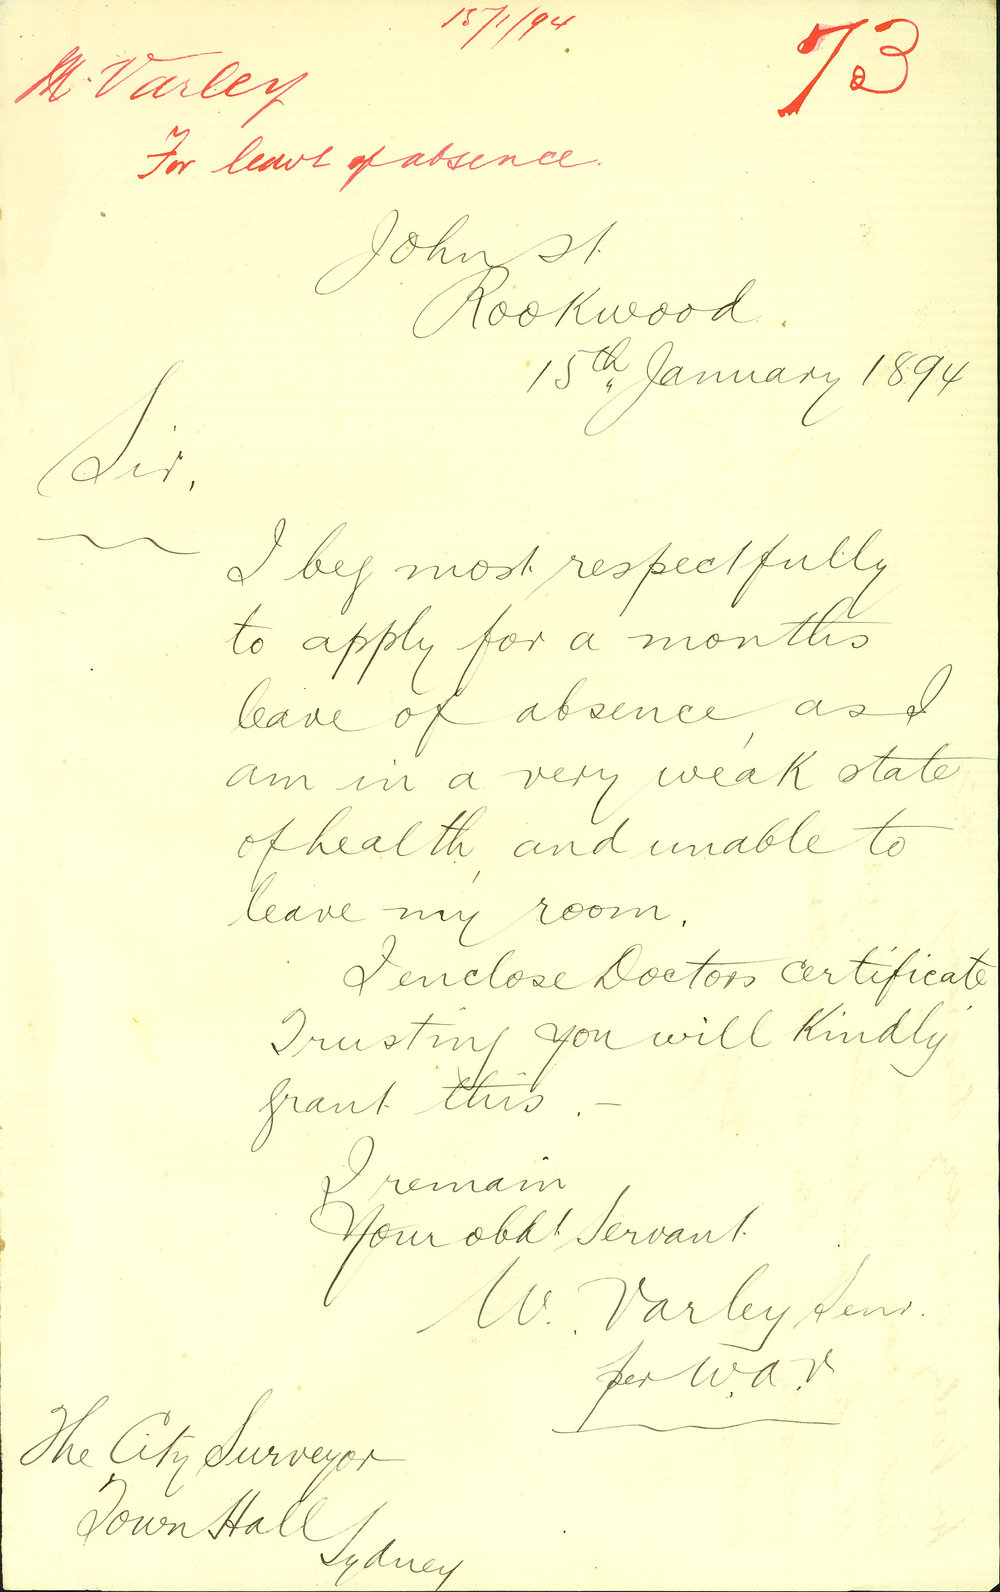 15/1/94
73
W. Varley
For leave of absence.
John St
Rookwood.
15th January 1894
Sir,
I beg most respectfully
to apply for a months
leave of absence, as I
am in a very weak state
of health, and unable to
leave my room.
I enclose Doctors certificate
Trusting you will Kindly
grant this. –
I remain
Your obdt Servant
W. Varley Senr.
per W.A.V
The City Surveyor
Town Hall
Sydney